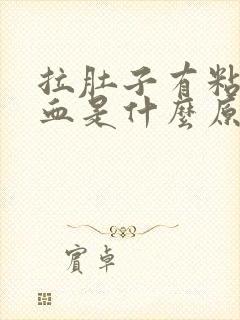 拉肚子有粘
血是什麼原
賓卓